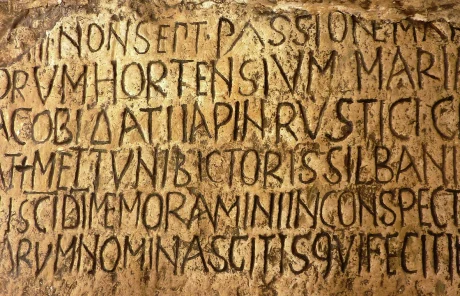 III NONSEPT·PASSIONE MAR
ORVM HORTENSIVM MARIA
ACOBI DATI IAPIN RVSTICI C
AT METTVNI BICTORIS SILBANI
SCTI DI MEMORAMINI IN CONSPECT
ARVM NOMINA SCITIS QVI FECIT IN